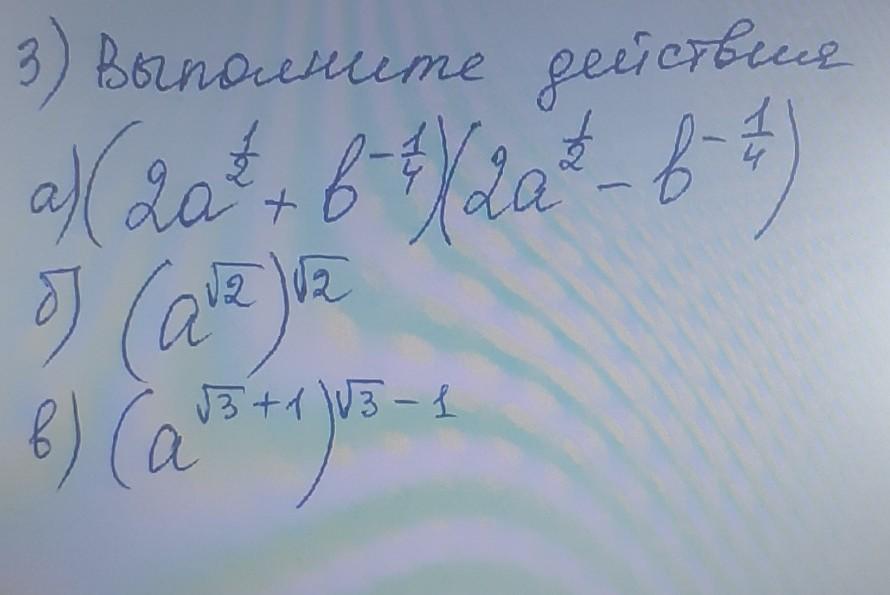 3) Выполните действия
а) (2a^{\frac{1}{2}} + b^{-\frac{1}{4}})(2a^{\frac{1}{2}} - b^{-\frac{1}{4}})
б) (a^{\sqrt{2}})^{\sqrt{2}}
в) (a^{\sqrt{3}+1})^{\sqrt{3}-1}